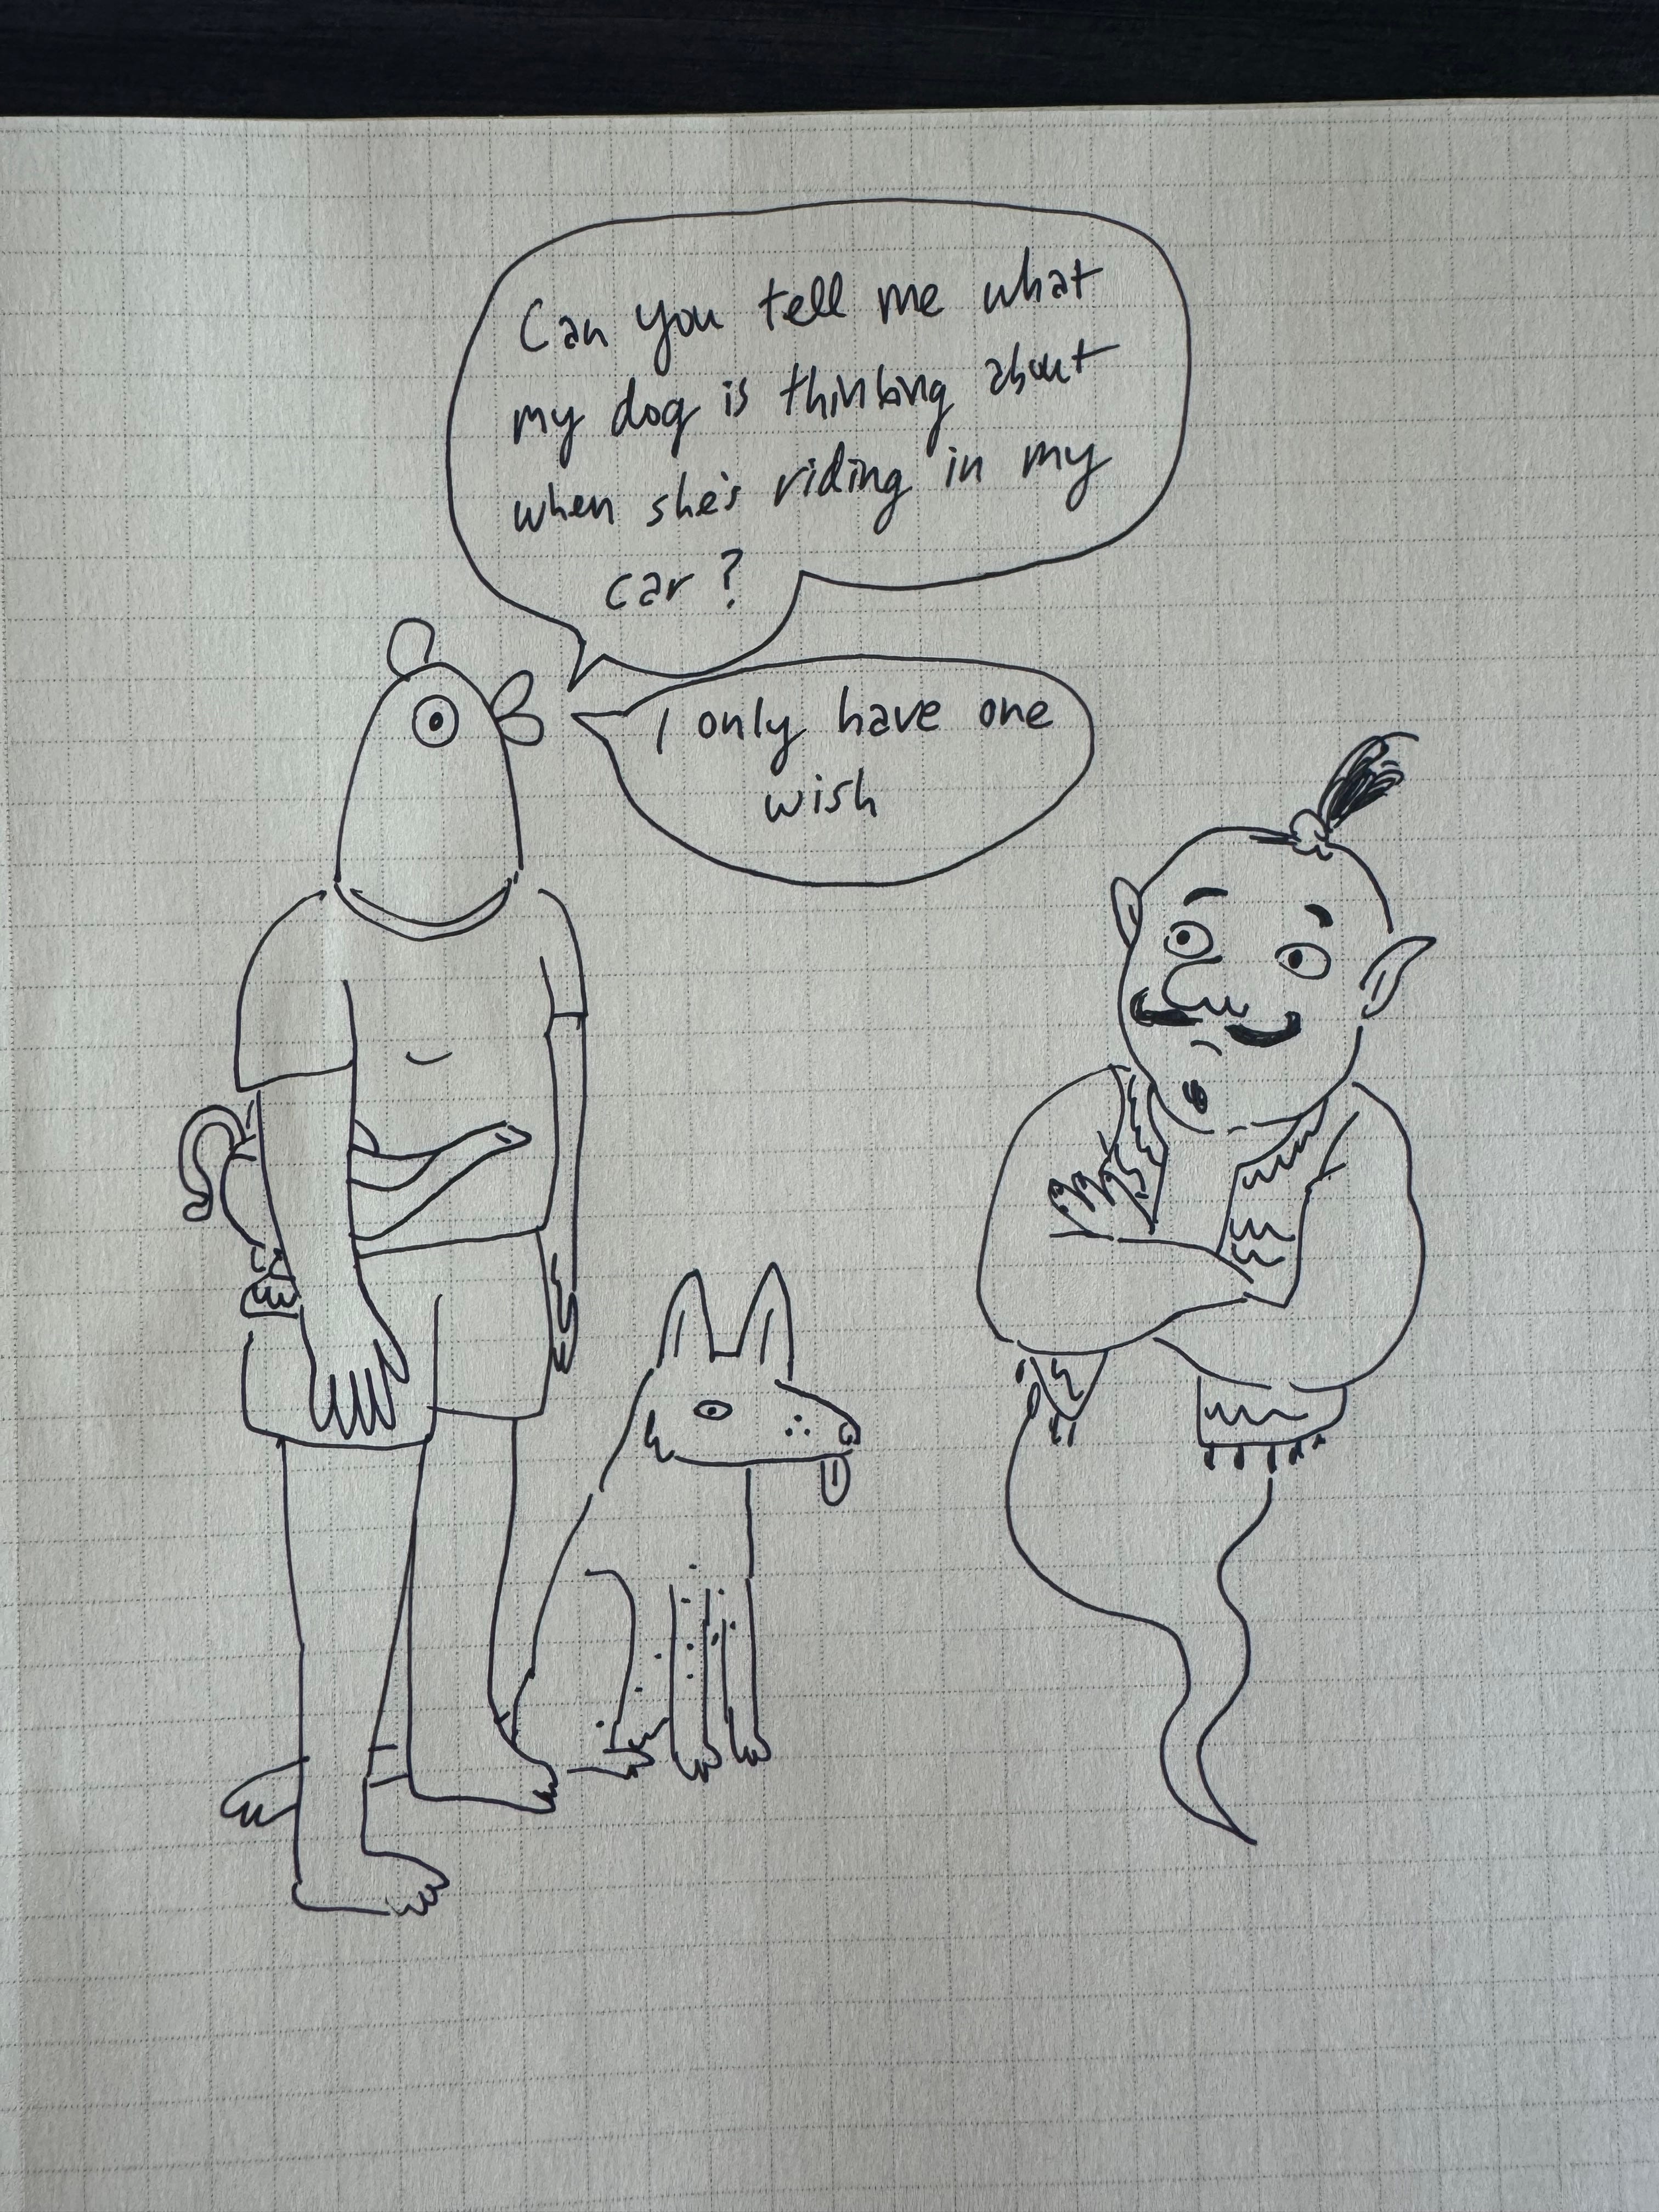 Can you tell me what
my dog is thinking about
when she's riding in my
car?
I only have one
wish